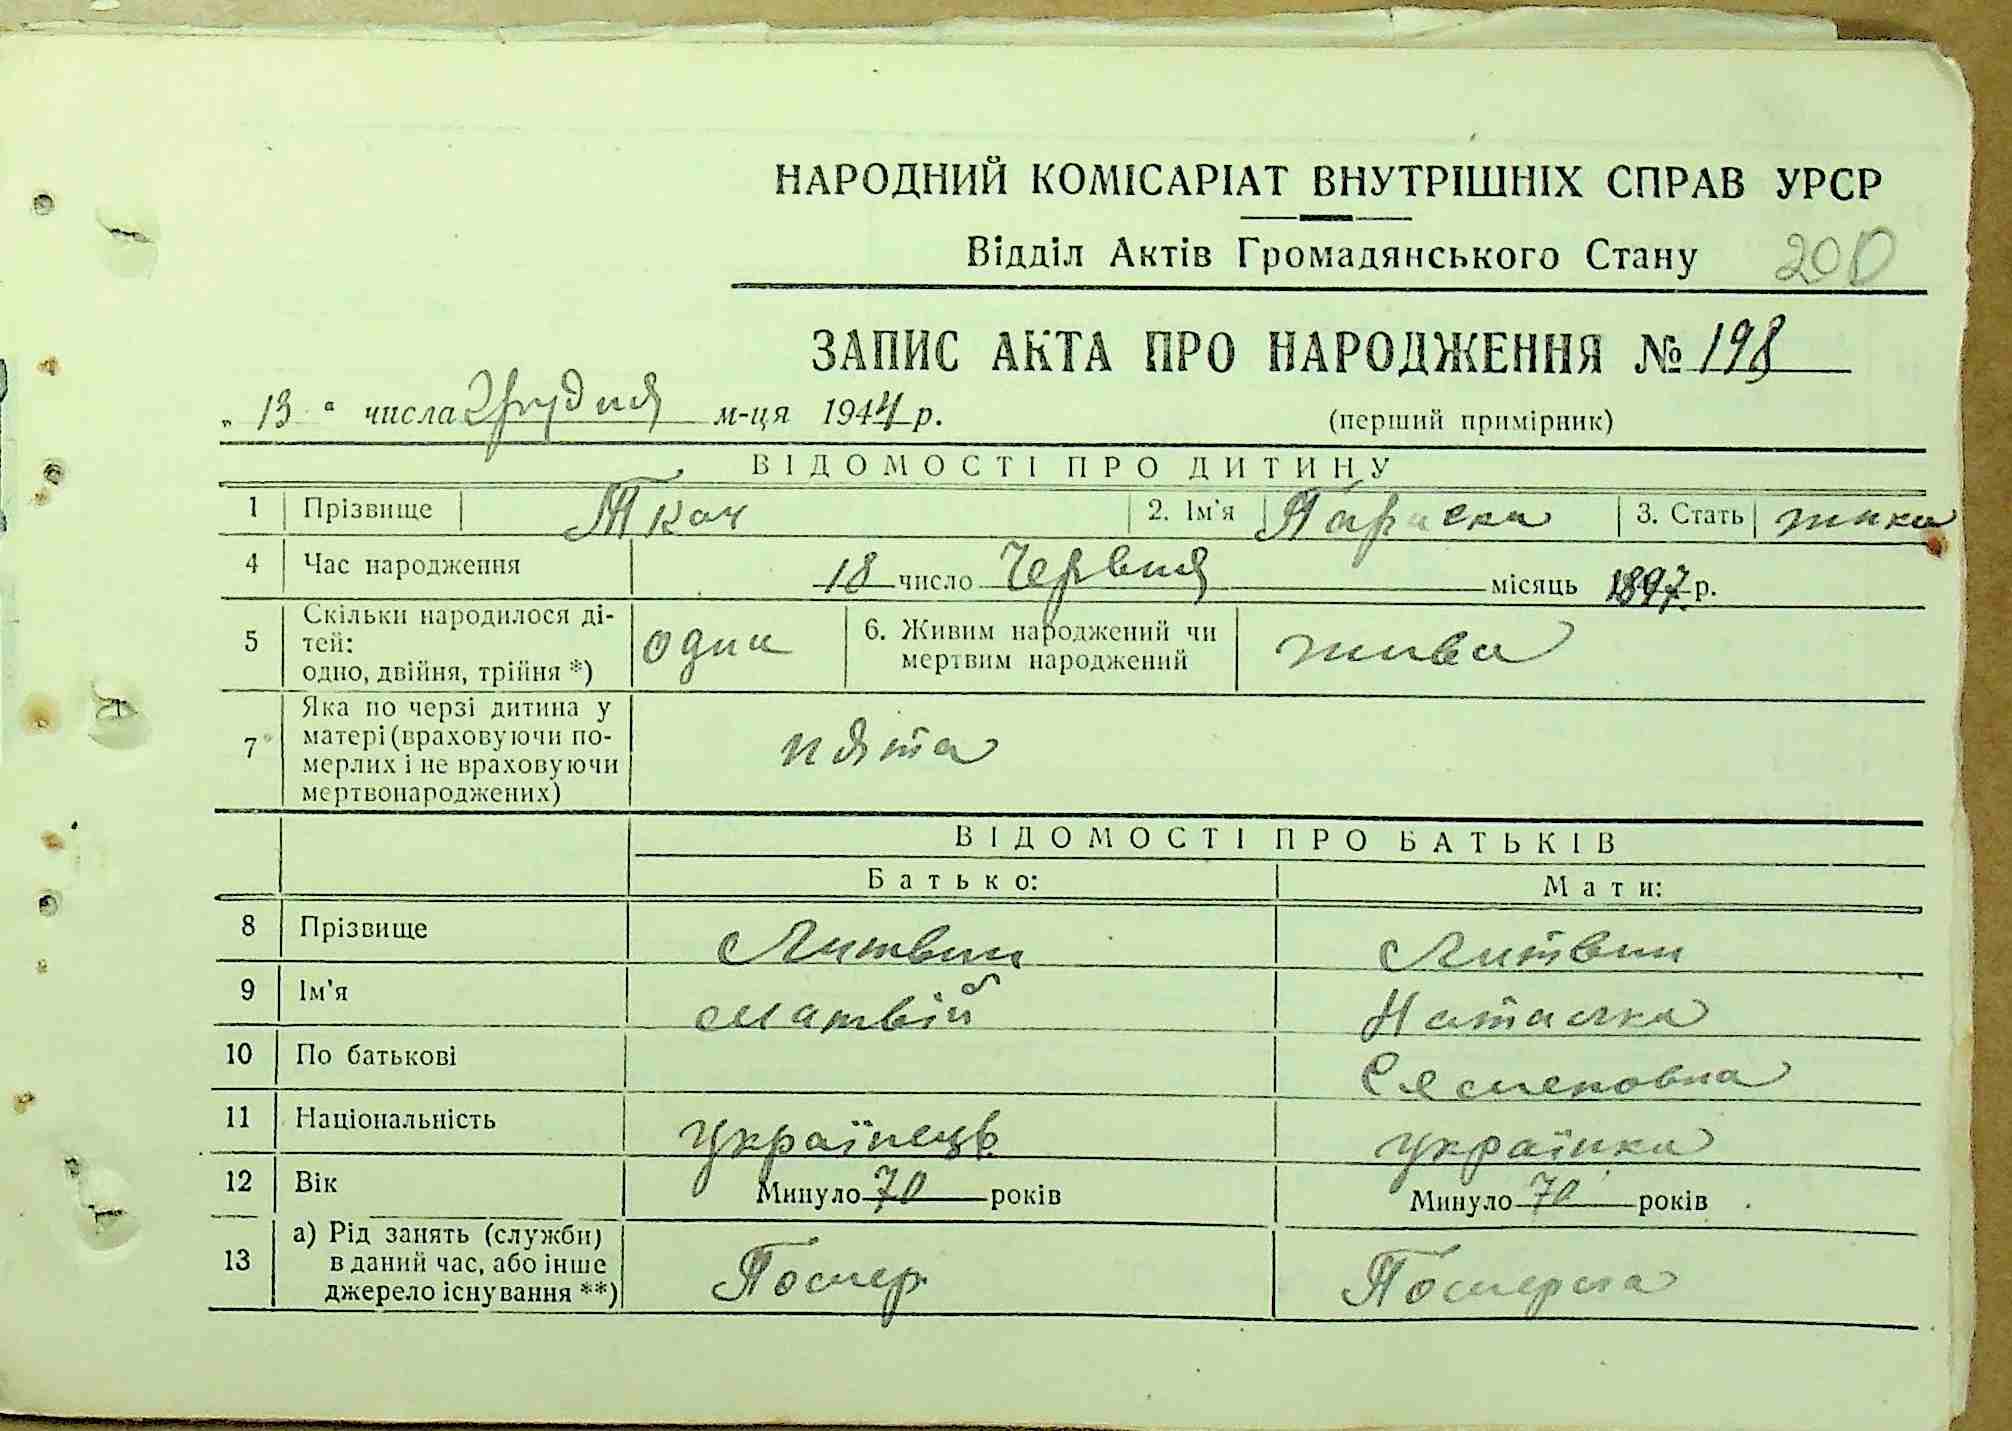 НАРОДНИЙ КОМІСАРІАТ ВНУТРІШНІХ СПРАВ УРСР
Відділ Актів Громадянського Стану 200
ЗАПИС АКТА ПРО НАРОДЖЕННЯ № 198
„ 13 “ числа грудня м-ця 1944 р. (перший примірник)
ВІДОМОСТІ ПРО ДИТИНУ
1 Прізвище Ткач 2. Ім'я Параска 3. Стать жінка
4 Час народження 18 число Червня місяць 1897 р.
5 Скільки народилося ді-
тей:
одно, двійня, трійня *) одна 6. Живим народжений чи
мертвим народжений жива
7 Яка по черзі дитина у
матері (враховуючи по-
мерлих і не враховуючи
мертвонароджених) пята
ВІДОМОСТІ ПРО БАТЬКІВ
Батько: Мати:
8 Прізвище Литвин Литвин
9 Ім'я Матвій Наталка
10 По батькові Семеновна
11 Національність українець українка
12 Вік Минуло 70 років Минуло 70 років
13 а) Рід занять (служби)
в даний час, або інше
джерело існування **) Помер Померла